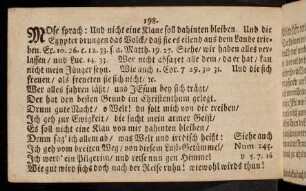 198.
Mose sprach: Und nicht eine Klaue soll dahinten bleiben. Und die
Egypter drungen das Volck, daß sie es eilend aus dem Lande trie-
ben. Ex. 10. 26. c. 12. 33. s. a. Matth. 19. 27. Siehe, wir haben alles ver-
lassen, und Luc. 14. 33. Wer nicht absaget alle dem, da er hat, kan
nicht mein Jünger seyn. Wie auch 1. Cor. 7 29. 30 31. Und die sich
freuen, als freueten sie sich nicht; 2c.
Wer alles fahren läßt, und JEsum bey sich trägt,
Der hat den besten Grund im Christenthum gelegt.
Drum gute Nacht, o Welt! du solt mich von dir treiben,
Ich geh zur Ewigkeit, die sucht mein armer Geist,
Es soll nicht eine Klau von mir dahinten bleiben,
Drum sag' ich allem ab, was Welt und irrdisch heißt: Siehe auch
Ich geh vom breiten Weg, von diesem Lust-Getümmel, Num 245.
Ich werd' ein Pilgerim, und reise nun gen Himmel v 5. 7. 16
Wie gut wird sichs doch nach der Reise ruhn! wie wohl wirds thun!